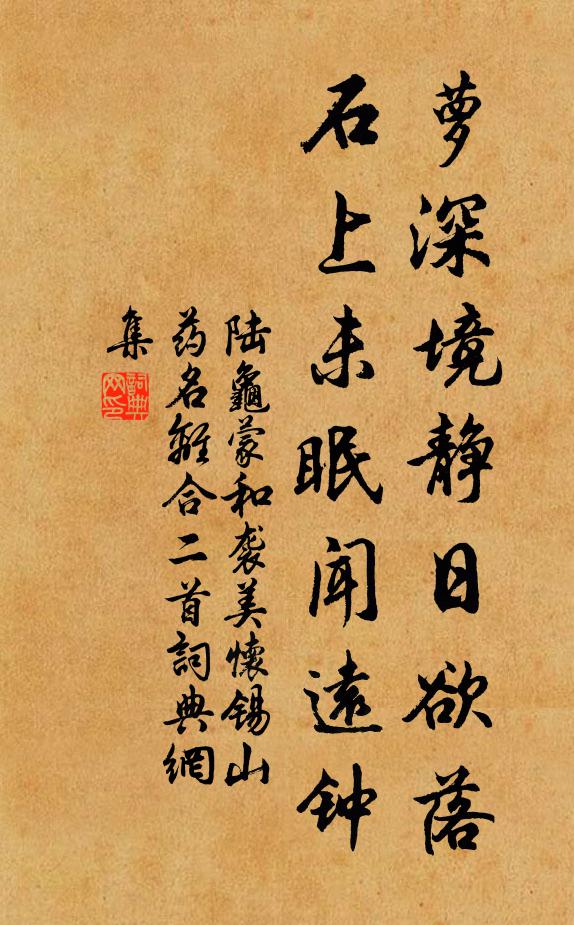 萝深境静日欲落
石上未眠闻遠钟
陆龜蒙和袭美懷锡山
药名離合二首詞典網
集
詞典
网印